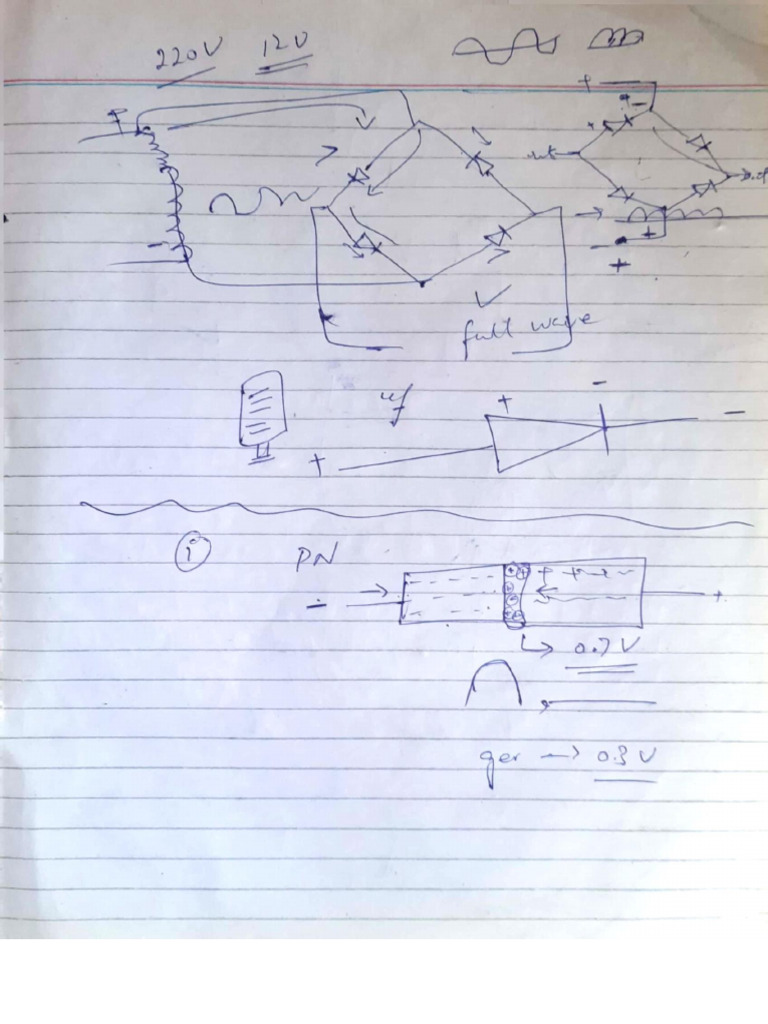 220V 12V
+
+ -
+
-
-
+
+
full wave
+ -
+ -
i PN
- + + - +
0.7 V
ger → 0.3 V